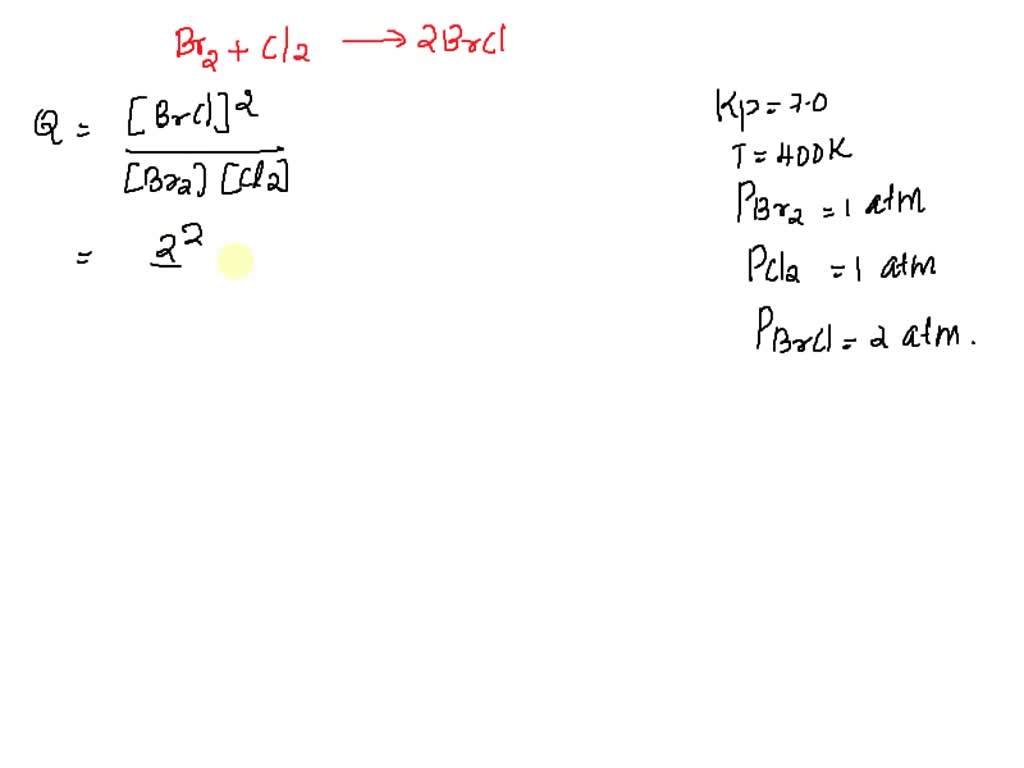 Br₂ + Cl₂ ⟶ 2BrCl
Q = [BrCl]² / [Br₂] [Cl₂]
= 2²
Kp = 7.0
T = 400K
P_Br₂ = 1 atm
P_Cl₂ = 1 atm
P_BrCl = 2 atm.